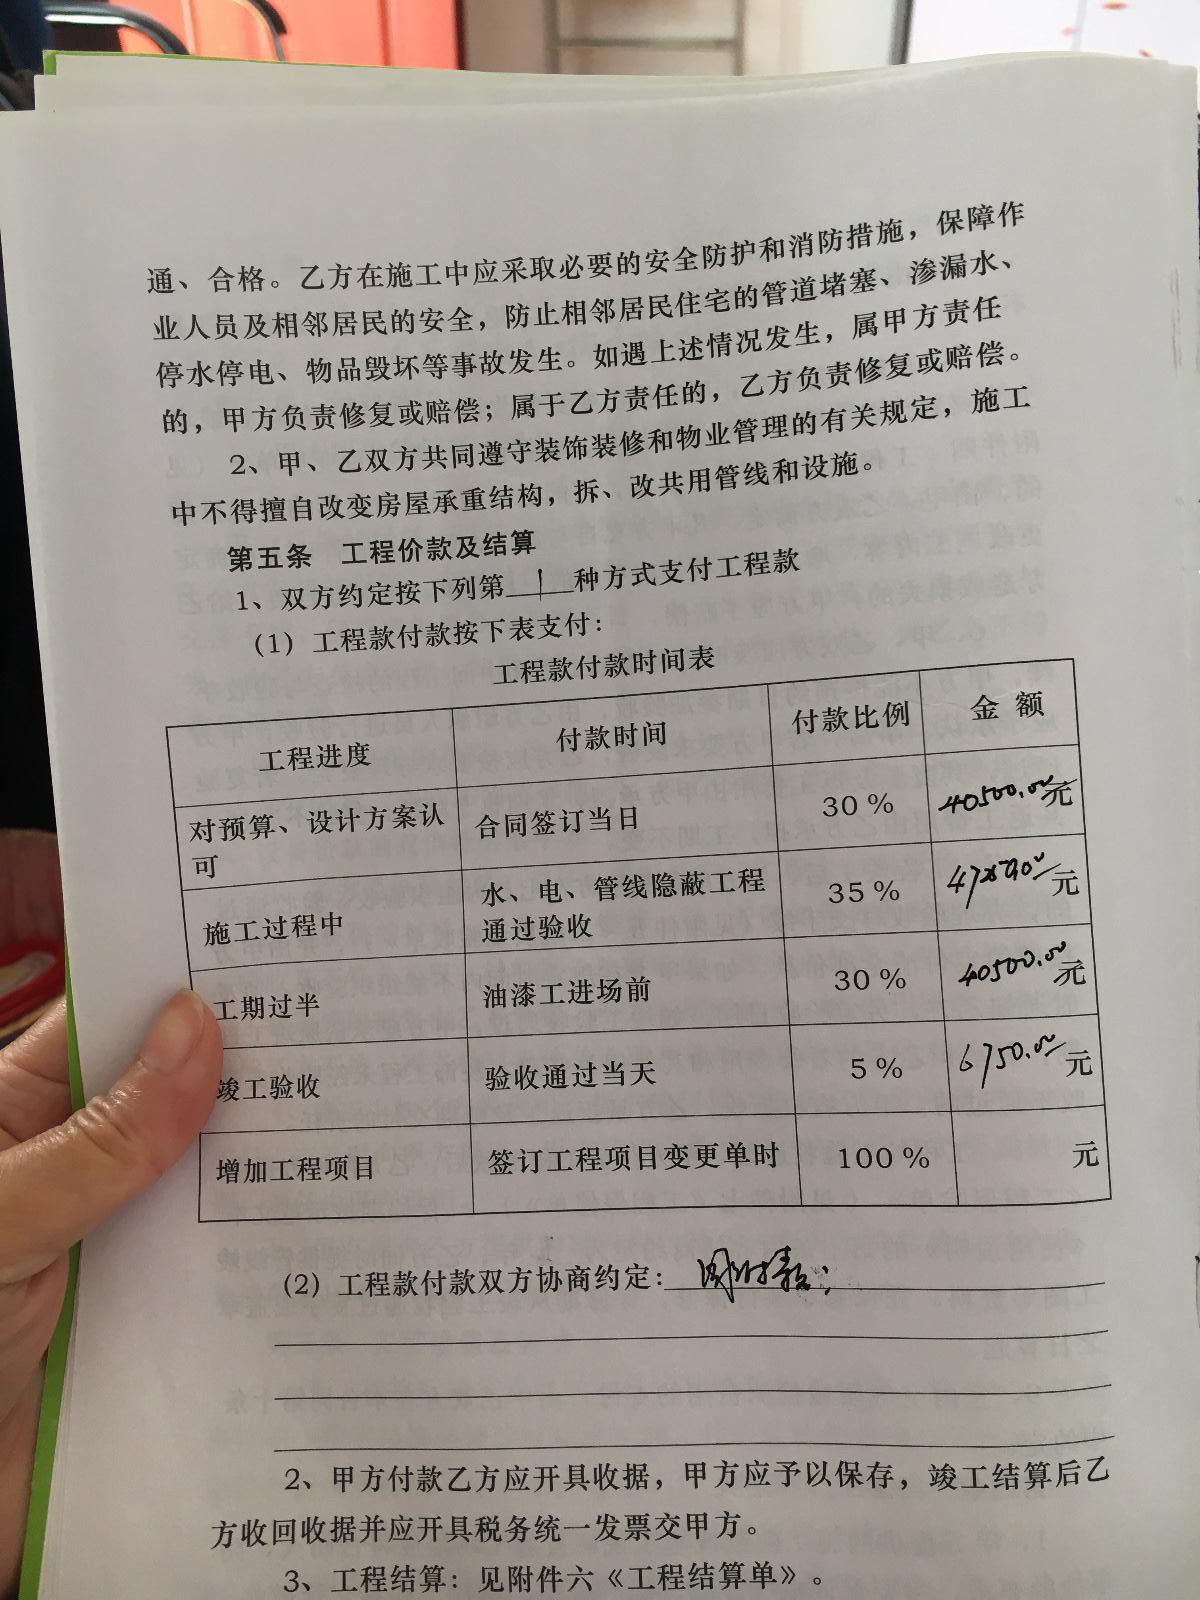 通、合格。乙方在施工中应采取必要的安全防护和消防措施，保障作
业人员及相邻居民的安全，防止相邻居民住宅的管道堵塞、渗漏水、
停水停电、物品毁坏等事故发生。如遇上述情况发生，属甲方责任
的，甲方负责修复或赔偿；属于乙方责任的，乙方负责修复或赔偿。
2、甲、乙双方共同遵守装饰装修和物业管理的有关规定，施工
中不得擅自改变房屋承重结构，拆、改共用管线和设施。
第五条 工程价款及结算
1、双方约定按下列第 1 种方式支付工程款
（1）工程款付款按下表支付：
工程款付款时间表
工程进度 付款时间 付款比例 金 额
对预算、设计方案认可 合同签订当日 30% 40500.00元
施工过程中 水、电、管线隐蔽工程通过验收 35% 元
工期过半 油漆工进场前 30% 40500.00元
竣工验收 验收通过当天 5% 6750.00元
增加工程项目 签订工程项目变更单时 100% 元
（2）工程款付款双方协商约定：
2、甲方付款乙方应开具收据，甲方应予以保存，竣工结算后乙
方收回收据并应开具税务统一发票交甲方。
3、工程结算：见附件六《工程结算单》。